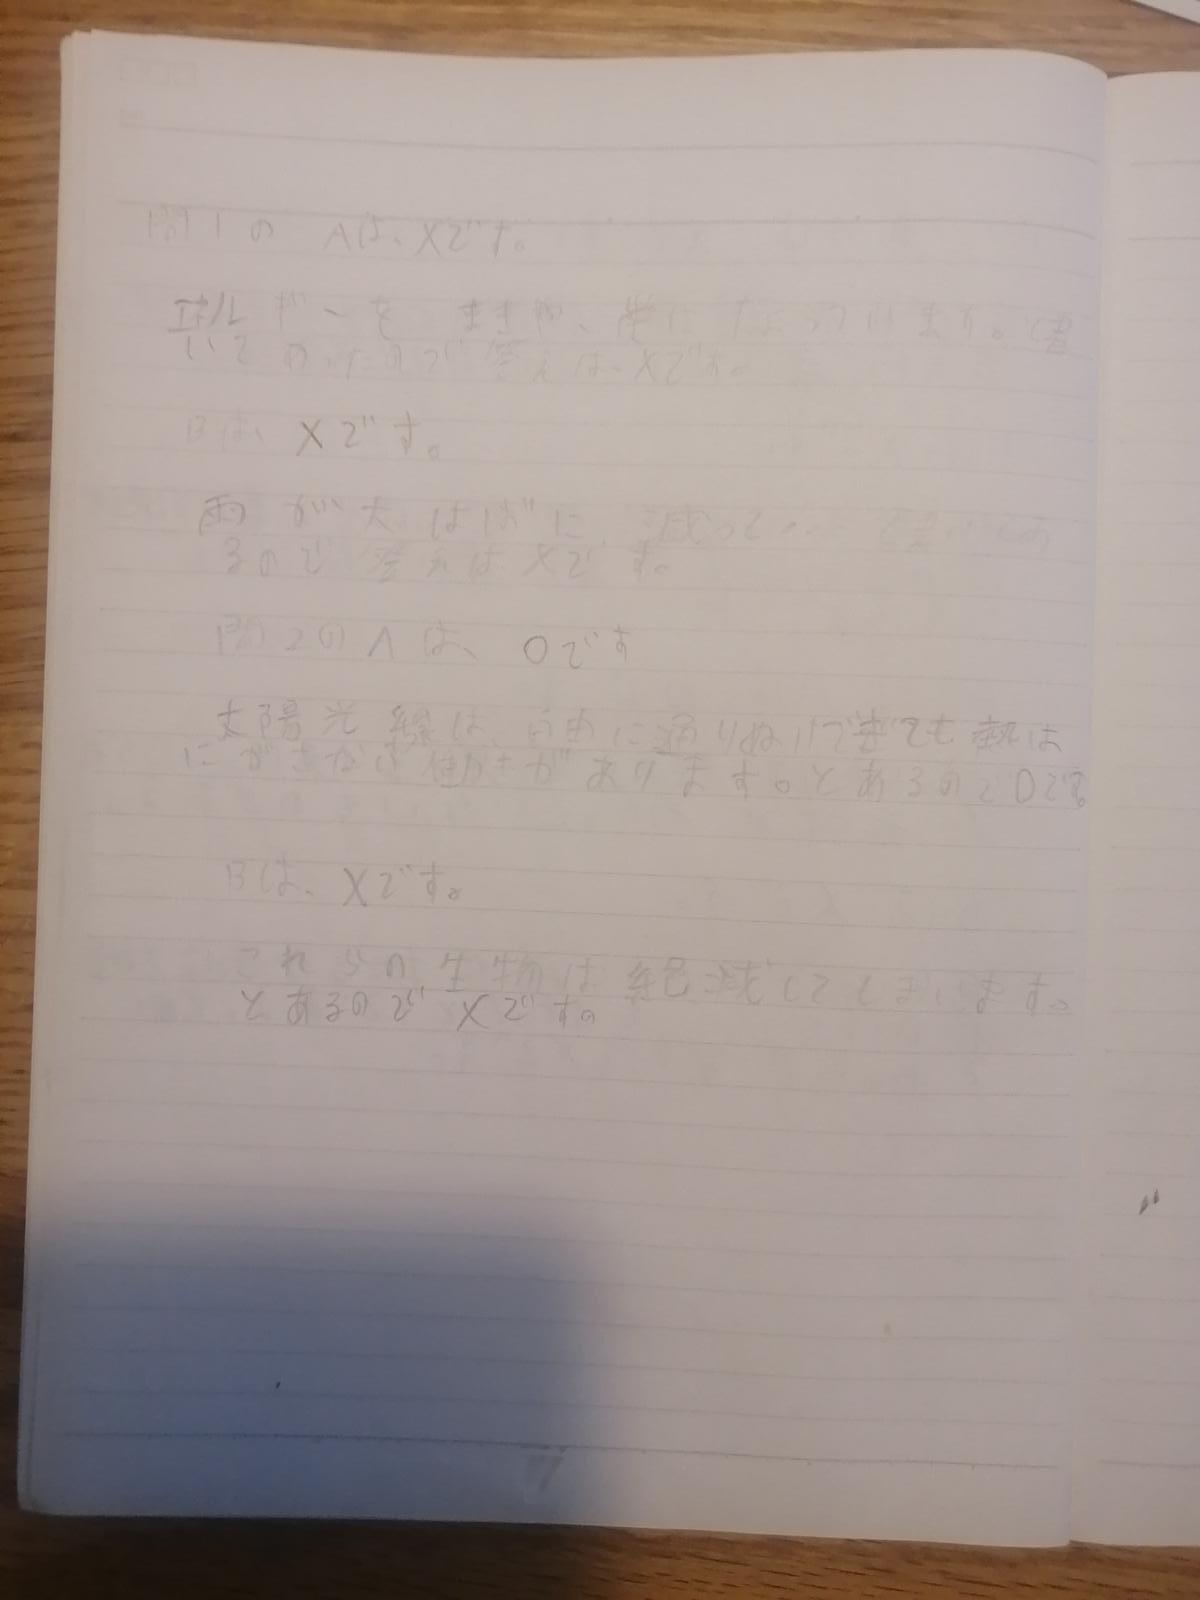 問1の Aは、Xです。
エネルギーを まきや、炭にたよっています。と書
いてあったので 答えは、Xです。
Bは、 Xです。
雨が大はばに、減って・・・と書いてあ
るので 答えは Xです。
問2の Aは、 Oです
太陽光線は、自由に通りぬけできても 熱は
にがさない働きが あります。とあるのでOです
Bは、Xです。
これらの生物は絶滅してしまいます。
とあるので Xです。